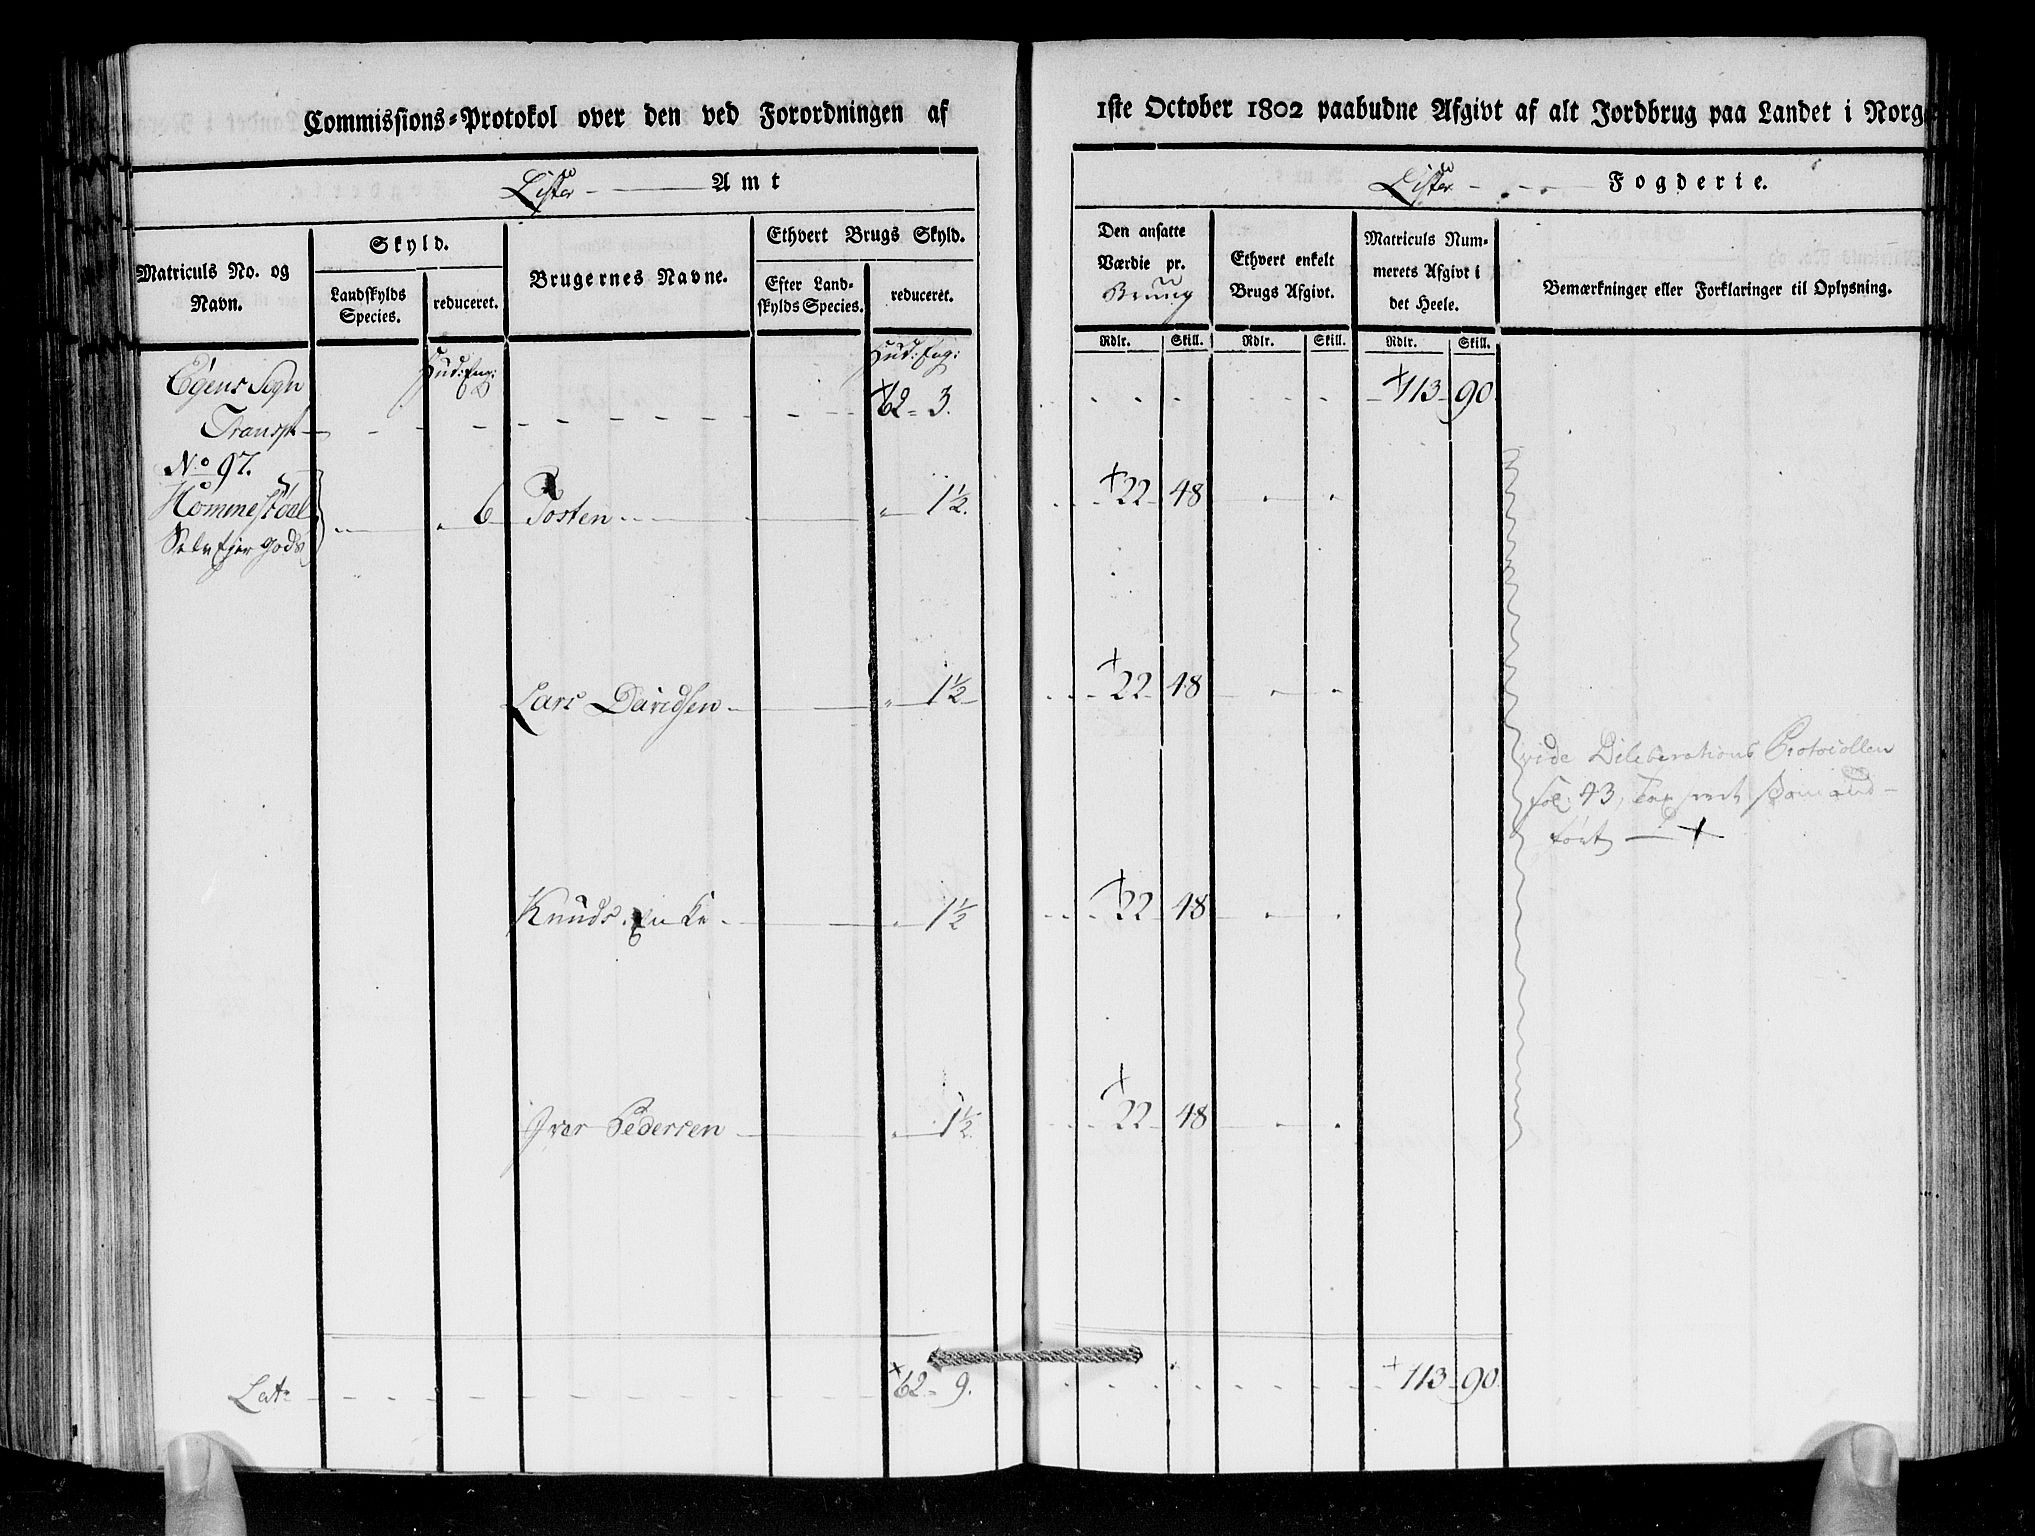 Commissions-Protokol over den ved Forordningen af 1ste October 1802 paabudne Afgivt af alt Jordbrug paa Landet i Norg
Lister Amt
Lister Fogderie.
Matriculs No. og Navn.
Skyld.
Landskylds Species.
reduceret.
Brugernes Navne.
Ethvert Brugs Skyld.
Efter Landskylds Species.
reduceret.
Den ansatte Værdie pr. Brug
Ethvert enkelt Brugs Afgivt.
Matriculs Nummerets Afgivt i det Heele.
Bemærkninger eller Forklaringer til Oplysning.
Rdlr. Skill. Rdlr. Skill. Rdlr. Skill.
Hud: Eng: Hud: Eng:
Egens Sogn
Transpt 62 - 3. 113 - 90
No 97.
Hommesdal 6 Tosten 1½. 22 - 48
Selv Ejer gods
Lars Davidsen 1½ 22 - 48
vide Deliberations Protocollen
fol: 43,
ført
Knuds Enke 1½ 22 - 48
Iver Pedersen 1½. 22 - 48
Lat: 62 - 9. 113 - 90